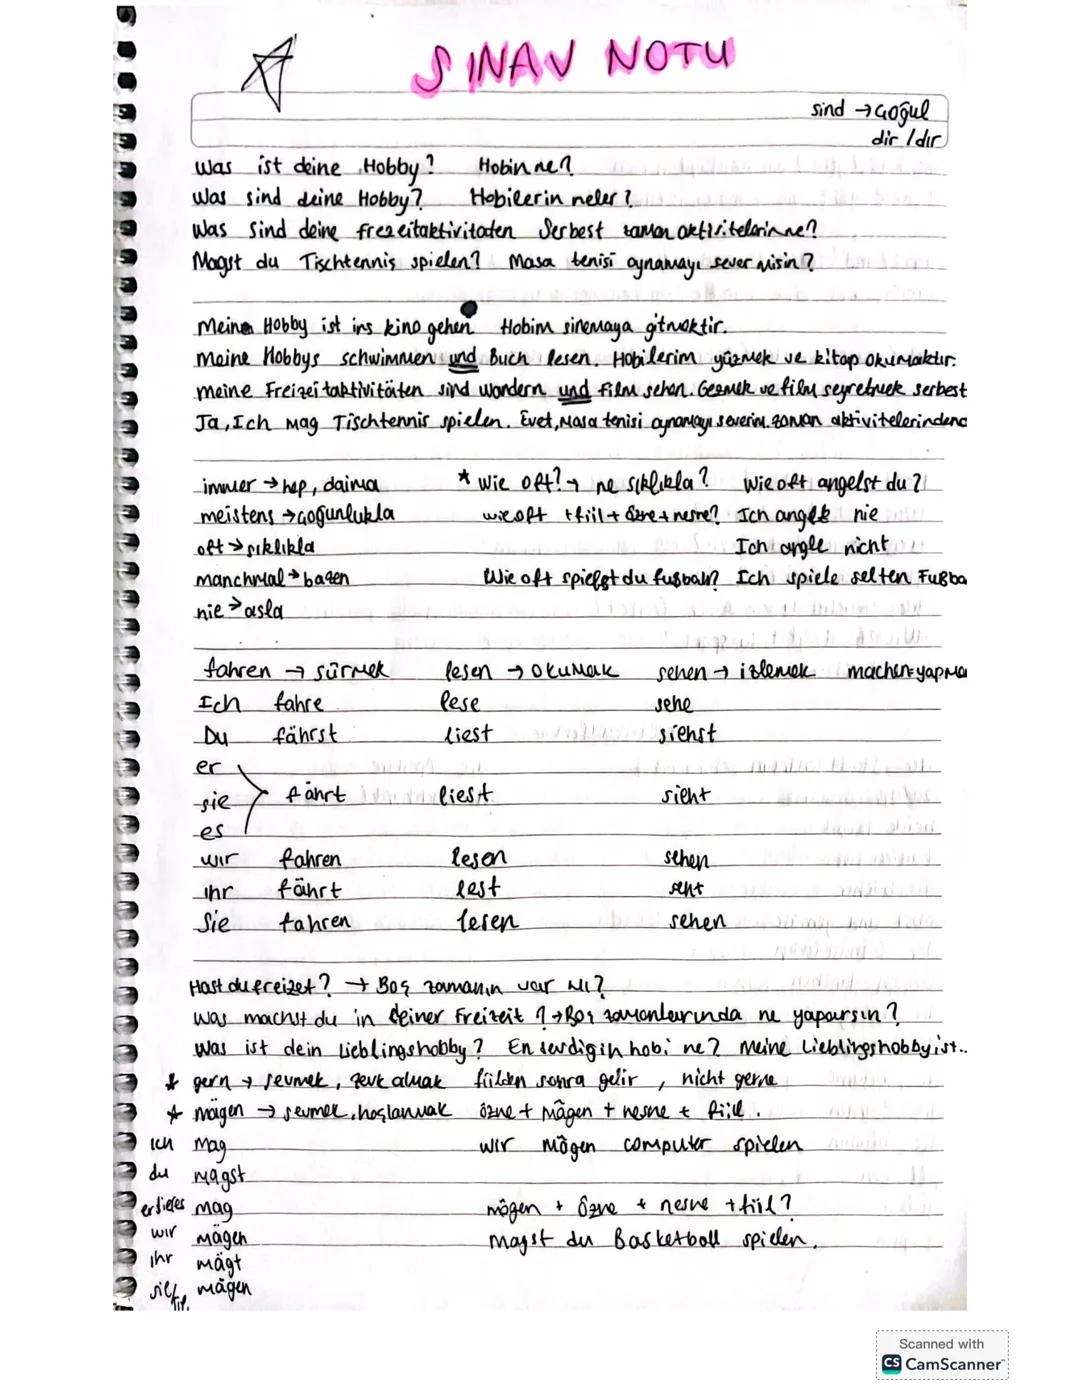 SINAV NOTU
sind → çoğul
dir / dır
Was ist deine Hobby? Hobin ne?
Was sind deine Hobby? Hobilerin neler?
Was sind deine frezeitaktivitaten Serbest zaman aktivitelerin ne?
Magst du Tischtennis spielen? Masa tenisi oynamayı sever misin?
Meine Hobby ist ins kino gehen Hobim sinemaya gitmektir.
Meine Hobbys schwimmen und Buch lesen. Hobilerim yüzmek ve kitap okumaktır.
Meine Freizeitaktivitäten sind wandern und Film sehen. Gezmek ve film seyretmek serbest
Ja, Ich mag Tischtennis spielen. Evet, Masa tenisi oynamayı severim. zaman aktivitelerindend
immer → hep, daima * Wie oft? → ne sıklıkla? Wie oft angelst du?
meistens → çoğunlukla wie oft + fiil + özne + nesne? Ich angle nie
oft → sıklıkla Ich angle nicht
manchmal → bazen Wie oft spielst du fusball? Ich spiele selten Fußba
nie → asla
fahren → sürmek lesen → okumak sehen → izlemek machen → yapma
Ich fahre lese sehe
Du fährst liest siehst
er
sie fährt liest sieht
es
wir fahren lesen sehen
ihr fährt lest seht
Sie fahren lesen sehen
Hast du freizet? → Boş zamanın var mı?
Was machst du in deiner Freizeit? → Boş zamanlarında ne yaparsın?
Was ist dein Lieblingshobby? En sevdiğin hobi ne? Meine Lieblingshobby ist..
* gern → sevmek, zevk almak fiilden sonra gelir, nicht gerne
* mägen → sevmek, hoşlanmak özne + mägen + nesne + fiil.
ich mag wir mögen computer spielen
du magst
er sie es mag mögen + özne + nesne + fiil?
wir mägen Magst du Basketball spielen.
ihr mägt
sie mägen
Scanned with
CS CamScanner